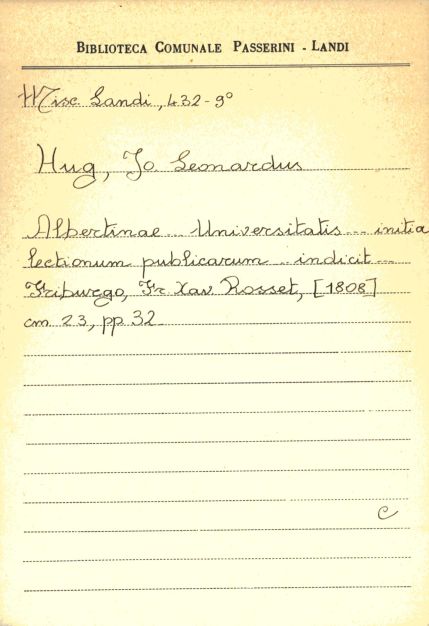 BIBLIOTECA COMUNALE PASSERINI - LANDI
Misc. Landi, 432-9°
Hug, Jo Leonardus
Albertinae ... Universitatis ... initia
lectionum publicarum ... indicit ...
Friburgo, Fr Xav Rosset, [1808]
cm 23, pp 32
C